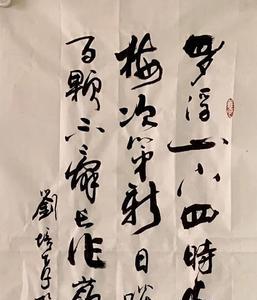 罗浮山下四時
梅次第新日啖
百顆不辭長作嶺
劉培